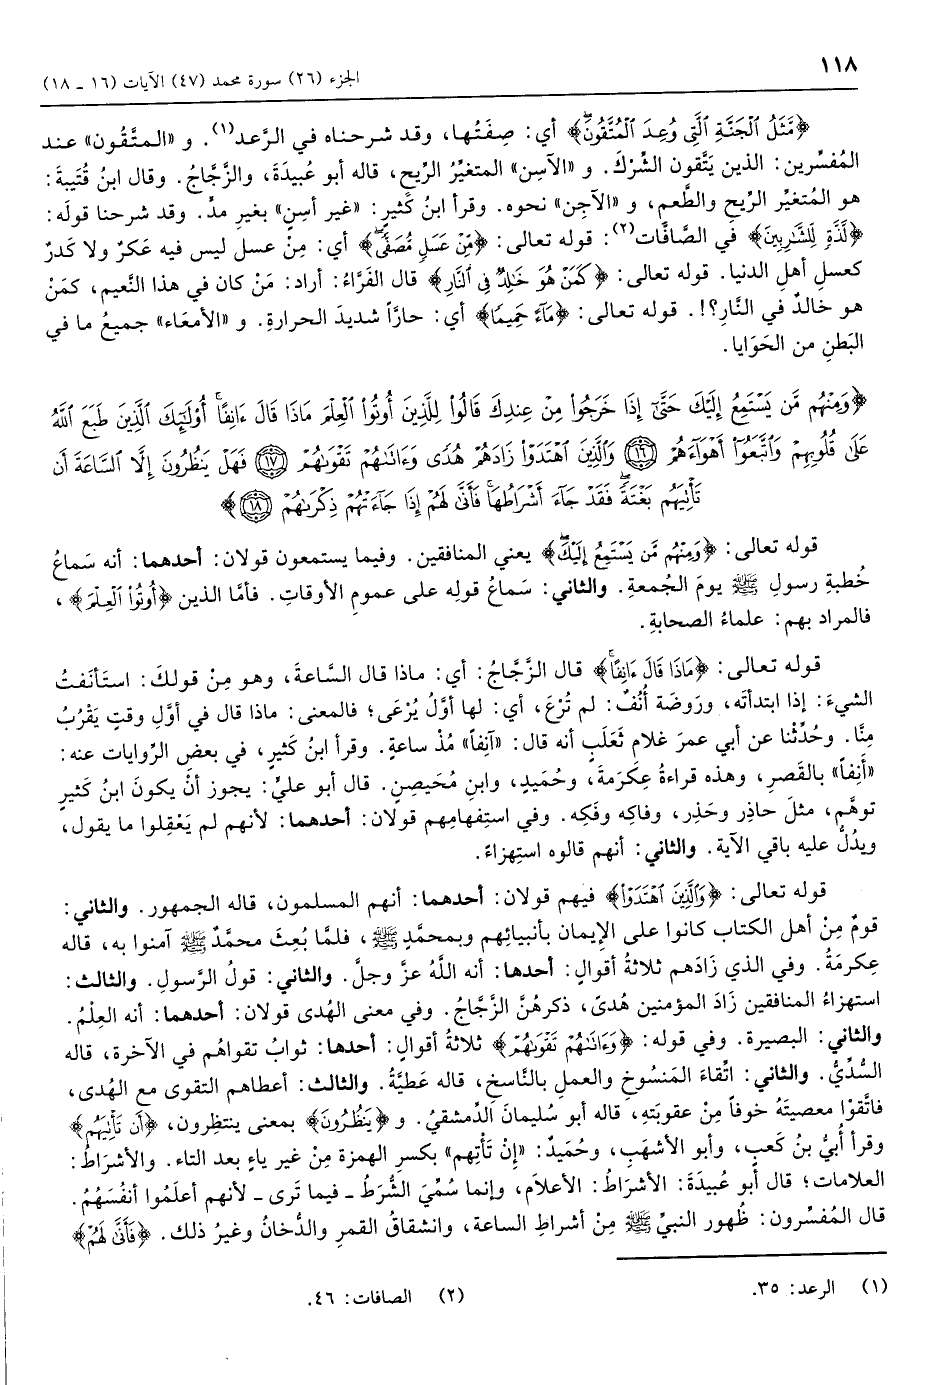 ١١٨
الجزء (٢٦) سورة محمد (٤٧) الآيات (١٦ ـ ١٨)
﴿مَّثَلُ ٱلْجَنَّةِ ٱلَّتِى وُعِدَ ٱلْمُتَّقُونَ﴾ أي: صِفَتُها، وقد شرحناه في الرَّعد(١). و «المتَّقُون» عند
المُفسِّرين: الذين يَتَّقون الشِّركَ. و «الآسِن» المتغيِّرُ الرِّيح، قاله أبو عُبيدَةَ، والزَّجَّاجُ. وقال ابنُ قُتَيبةَ:
هو المُتغيِّر الرِّيحِ والطَّعم، و «الآجِن» نحوه. وقرأ ابنُ كَثيرٍ: «غير أسِنٍ» بغيرِ مدٍّ. وقد شرحنا قولَه:
﴿لَّذَّةٍ لِّلشَّٰرِبِينَ﴾ في الصَّافَّات(٢): قوله تعالى: ﴿مِّنْ عَسَلٍ مُّصَفًّى﴾ أي: مِنْ عسل ليس فيه عَكَرٌ ولا كَدرٌ
كعسلِ أهلِ الدنيا. قوله تعالى: ﴿كَمَنْ هُوَ خَٰلِدٌ فِى ٱلنَّارِ﴾ قال الفَرَّاءُ: أراد: مَنْ كان في هذا النَّعيم، كمَنْ
هو خالدٌ في النَّارِ؟!. قوله تعالى: ﴿مَآءً حَمِيمًا﴾ أي: حارّاً شديدَ الحرارةِ. و «الأمعَاء» جميعُ ما في
البَطنِ من الحَوَايا.
﴿وَمِنْهُم مَّن يَسْتَمِعُ إِلَيْكَ حَتَّىٰٓ إِذَا خَرَجُوا۟ مِنْ عِندِكَ قَالُوا۟ لِلَّذِينَ أُوتُوا۟ ٱلْعِلْمَ مَاذَا قَالَ ءَانِفًا أُو۟لَٰٓئِكَ ٱلَّذِينَ طَبَعَ ٱللَّهُ
عَلَىٰ قُلُوبِهِمْ وَٱتَّبَعُوٓا۟ أَهْوَآءَهُمْ ﴿١٦﴾ وَٱلَّذِينَ ٱهْتَدَوْا۟ زَادَهُمْ هُدًى وَءَاتَىٰهُمْ تَقْوَىٰهُمْ ﴿١٧﴾ فَهَلْ يَنظُرُونَ إِلَّا ٱلسَّاعَةَ أَن
تَأْتِيَهُم بَغْتَةً فَقَدْ جَآءَ أَشْرَاطُهَا فَأَنَّىٰ لَهُمْ إِذَا جَآءَتْهُمْ ذِكْرَىٰهُمْ ﴿١٨﴾﴾
قوله تعالى: ﴿وَمِنْهُم مَّن يَسْتَمِعُ إِلَيْكَ﴾ يعني المنافقين. وفيما يستمعون قولان: أحدهما: أنه سَماعُ
خُطبةِ رسولِ ﷺ يومَ الجُمعةِ. والثاني: سَماعُ قولِه على عمومِ الأوقاتِ. فأمَّا الذين ﴿أُوتُوا۟ ٱلْعِلْمَ﴾،
فالمراد بهم: علماءُ الصحابةِ.
قوله تعالى: ﴿مَاذَا قَالَ ءَانِفًا﴾ قال الزَّجَّاجُ: أي: ماذا قال السَّاعةَ، وهو مِنْ قولكَ: استَأنَفتُ
الشيءَ: إذا ابتدأتَه، ورَوضَة أُنُفٌ: لم تُرْعَ، أي: لها أوَّلُ يُرْعَى؛ فالمعنى: ماذا قال في أوَّلِ وقتٍ يَقْرُبُ
مِنَّا. وحُدِّثْنا عن أبي عمرَ غلامِ ثَعلَبٍ أنه قال: «آنِفاً» مُذْ ساعةٍ. وقرأ ابنُ كَثيرٍ، في بعض الرِّوايات عنه:
«أَنِفاً» بالقَصرِ، وهذه قراءةُ عِكرمَةَ، وحُمَيدٍ، وابنِ مُحَيصِنٍ. قال أبو عليٍّ: يجوز أنْ يكونَ ابنُ كَثيرٍ
توهَّم، مثلَ حاذِر وحَذِر، وفاكِه وفَكِه. وفي استِفهامِهم قولان: أحدهما: لأنهم لم يَعْقِلوا ما يقول،
ويدُلُّ عليه باقي الآية. والثاني: أنهم قالوه استِهزاءً.
قوله تعالى: ﴿وَٱلَّذِينَ ٱهْتَدَوْا۟﴾ فيهم قولان: أحدهما: أنهم المسلمون، قاله الجمهور. والثاني:
قومٌ مِنْ أهل الكتاب كانوا على الإيمان بأنبيائِهم وبمحمَّدٍ ﷺ، فلمَّا بُعِثَ محمَّدٌ ﷺ آمنوا به، قاله
عِكرمَةُ. وفي الذي زَادَهم ثلاثةُ أقوالٍ: أحدها: أنه اللَّهُ عزَّ وجلَّ. والثاني: قولُ الرَّسولِ. والثالث:
استهزاءُ المنافقين زَادَ المؤمنين هُدىً، ذكرهُنَّ الزَّجَّاجُ. وفي معنى الهُدى قولان: أحدهما: أنه العِلمُ.
والثاني: البصيرة. وفي قوله: ﴿وَءَاتَىٰهُمْ تَقْوَىٰهُمْ﴾ ثلاثةُ أقوالٍ: أحدها: ثوابُ تقواهُم في الآخرة، قاله
السُّدِّيُّ. والثاني: اتِّقاءَ المَنسُوخِ والعملِ بالنَّاسخِ، قاله عَطيَّةُ. والثالث: أعطاهم التقوى مع الهُدى،
فاتَّقوْا معصيتَهُ خوفاً مِنْ عقوبتِهِ، قاله أبو سُليمانَ الدِّمشقيُ. و ﴿يَنظُرُونَ﴾ بمعنى ينتظِرون، ﴿أَن تَأْتِيَهُم﴾
وقرأ أُبيُّ بنُ كَعبٍ، وأبو الأشهَبِ، وحُمَيدٌ: «إنْ تَأْتِهم» بكسرِ الهمزة مِنْ غير ياءٍ بعد التاء. والأشرَاطُ:
العلامات؛ قال أبو عُبيدَةَ: الأشرَاطُ: الأعلاَم، وإنما سُمِّيَ الشُّرَطُ ـ فيما تَرى ـ لأنهم أعلَمُوا أنفُسَهُمُ.
قال المُفسِّرون: ظُهور النبيِّ ﷺ مِنْ أشراطِ الساعة، وانشقاقُ القمرِ والدُّخانُ وغيرُ ذلك. ﴿فَأَنَّىٰ لَهُمْ﴾
(١) الرعد: ٣٥.
(٢) الصافات: ٤٦.